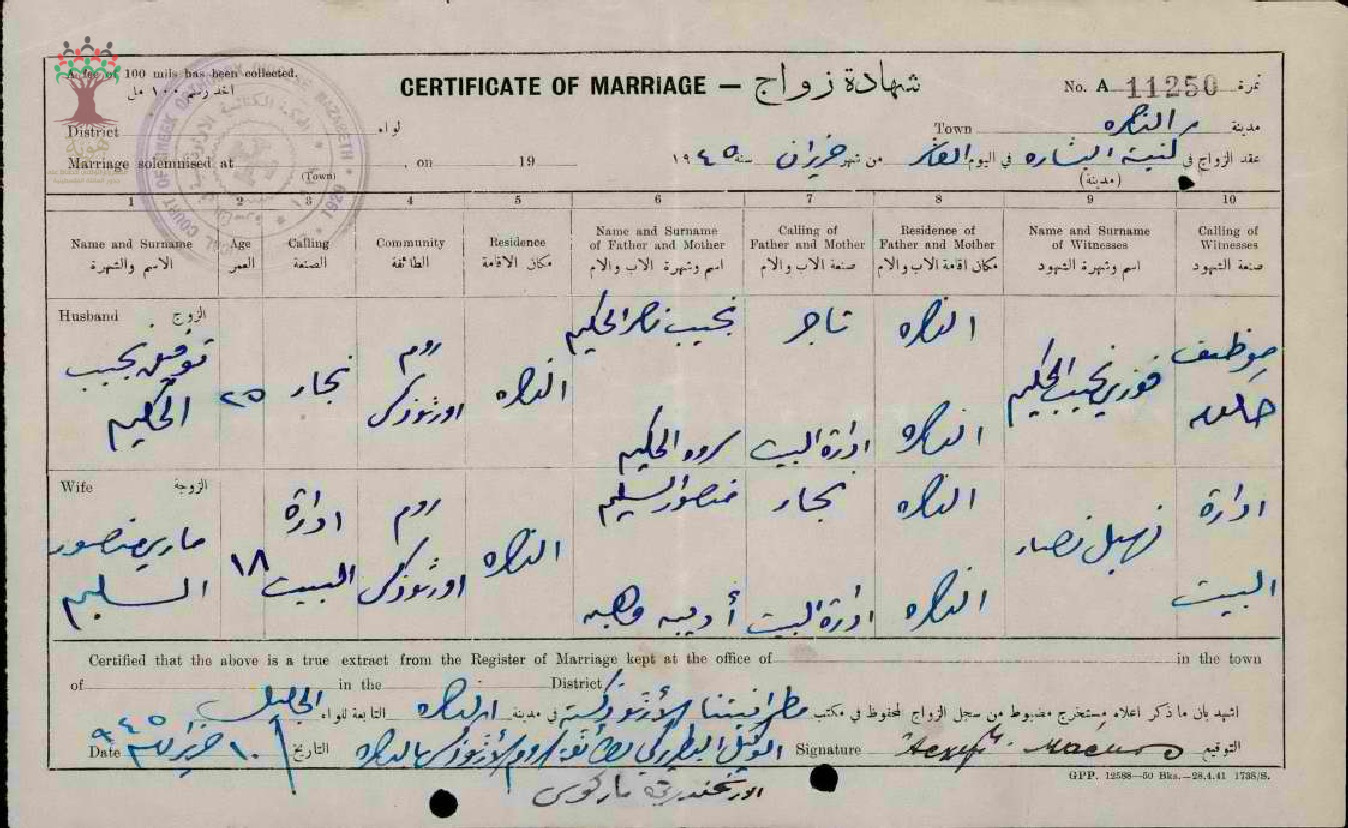 A fee of 100 mils has been collected.
أخذ رسم ١٠٠ مل
CERTIFICATE OF MARRIAGE — شهادة زواج
No. A 11250 نمرة
District لواء
Town الناصره مدينة
Marriage solemnised at , on 19
(Town)
عقد الزواج في كنيسة البشاره في اليوم العاشر من شهر حزيران سنة ١٩٤٥
(مدينة)
1 2 3 4 5 6 7 8 9 10
Name and Surname Age Calling Community Residence Name and Surname of Father and Mother Calling of Father and Mother Residence of Father and Mother Name and Surname of Witnesses Calling of Witnesses
الاسم والشهرة العمر الصنعة الطائفة مكان الاقامة اسم وشهرة الاب والام صنعة الاب والام مكان اقامة الاب والام اسم وشهرة الشهود صنعة الشهود
Husband الزوج
توفيق نجيب الحكيم
٢٥
نجار
روم اورثوذكس
الناصره
نجيب ناصر الحكيم
تاجر
الناصره
الحكيم
ادارة البيت
الناصره
فوزي نجيب الحكيم
موظف
Wife الزوجة
ماري منصور السليم
١٨
ادارة البيت
روم اورثوذكس
الناصره
منصور السليم
نجار
الناصره
أديبه وهبه
ادارة البيت
الناصره
نصار
ادارة البيت
Certified that the above is a true extract from the Register of Marriage kept at the office of in the town
of in the District
اشهد بان ما ذكر اعلاه مستخرج مضبوط من سجل الزواج المحفوظ في مكتب مطرانيتنا الأرثوذكسية في مدينة الناصره التابعة للواء الجليل
Date ١٠ حزيران ٩٤٥ التاريخ
الوكيل البطريركي لطائفة الروم الأرثوذكس بالناصره
Signature التوقيع
ماركوس
GPP. 12588—50 Bks.—28.4.41 1738/S.